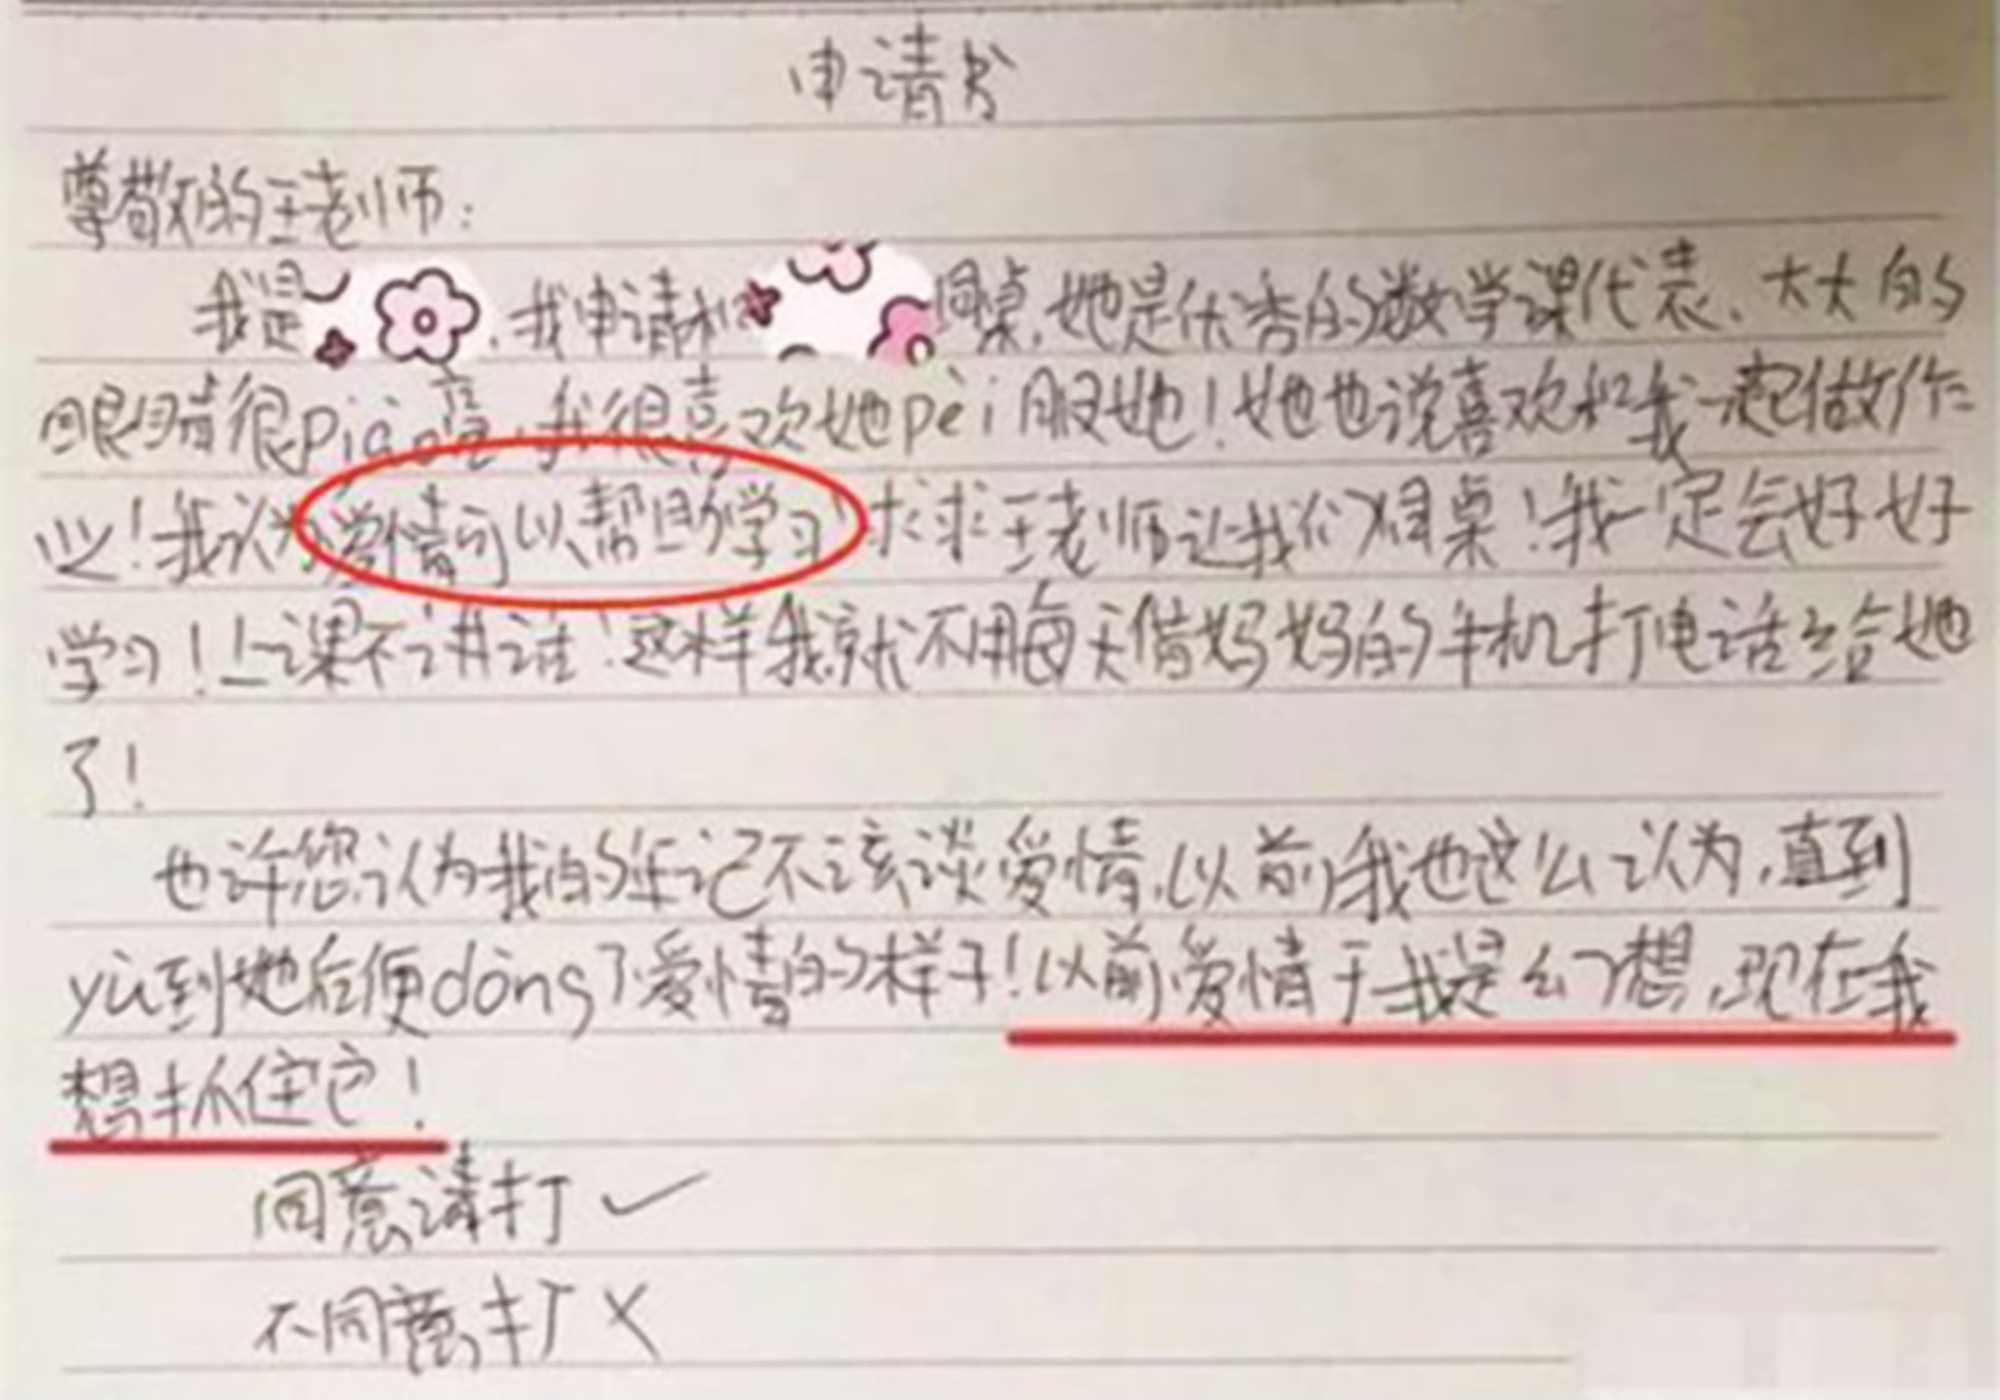 申请书
尊敬的王老师:
我是,我申请和同桌,她是优秀的数学课代表、大大的
眼睛很piào亮,我很喜欢她pèi服她!她也说喜欢和我一起做作
业!我认为爱情可以帮助学习!求求王老师让我们做同桌!我一定会好好
学习!上课不讲话!这样我就不用每天借妈妈的手机打电话给她
了!
也许您认为我的年记不该谈爱情,以前我也这么认为,直到
yù到她后便dǒng了爱情的样子!以前爱情于我是幻想,现在我
想抓住它!
同意请打✓
不同意打×